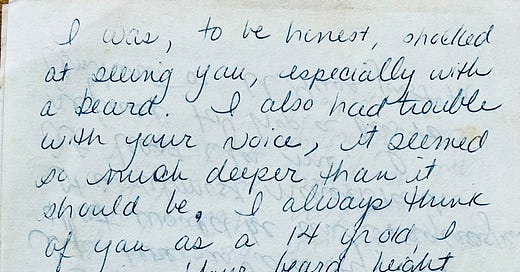 I was, to be honest, shocked
at seeing you, especially with
a beard. I also had trouble
with your voice, it seemed
so much deeper than it
should be. I always think
of you as a 14 yr old, I
your beard, height